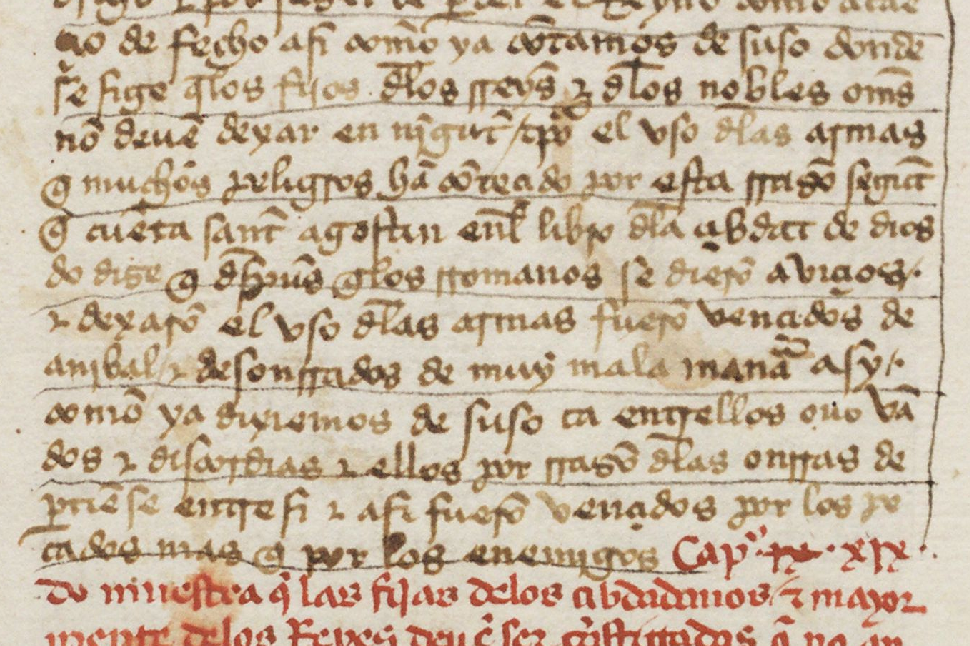 çio de fecho asi com̃o ya cõtamos de suso donde
se sige q̃ los fijos dl̃os rreys̃ τ dl̃os nobles om̃s
nõ deuẽ dexar en nĩgũt tp̃o el vso dl̃as armas
q̃ muchos peligros hã cõteçido por esta rrasõ segũt
q̃ cuẽta sant̃ agostin enl̃ libro dl̃a çibdat de dios
do dise q̃ desp̃us q̃ los rromanos se dierõ a viçios
τ dexarõ el vso dl̃as armas fuerõ vençidos de
anibal τ desonrrados de muy mala manã asy
com̃o ya diximos de suso ca entrellos ouo vã
dos τ discordias τ ellos por rrasõ dl̃as onrras de
p̃tiẽse entre si τ asi fuerõ vençidos por los pe
cados mas q̃ por los enemigos Cap̊ xix
do muestra q̃ las fijas delos çibdadanos τ mayor
mente delos Reyes deuẽ ser q̃ no an